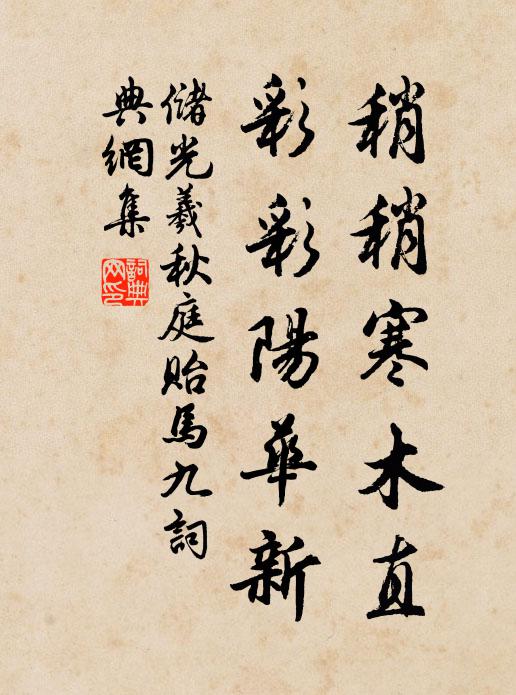 稍稍寒木直
彩彩陽華新
儲光羲秋庭貽馬九詞
典網集
詞典
网印